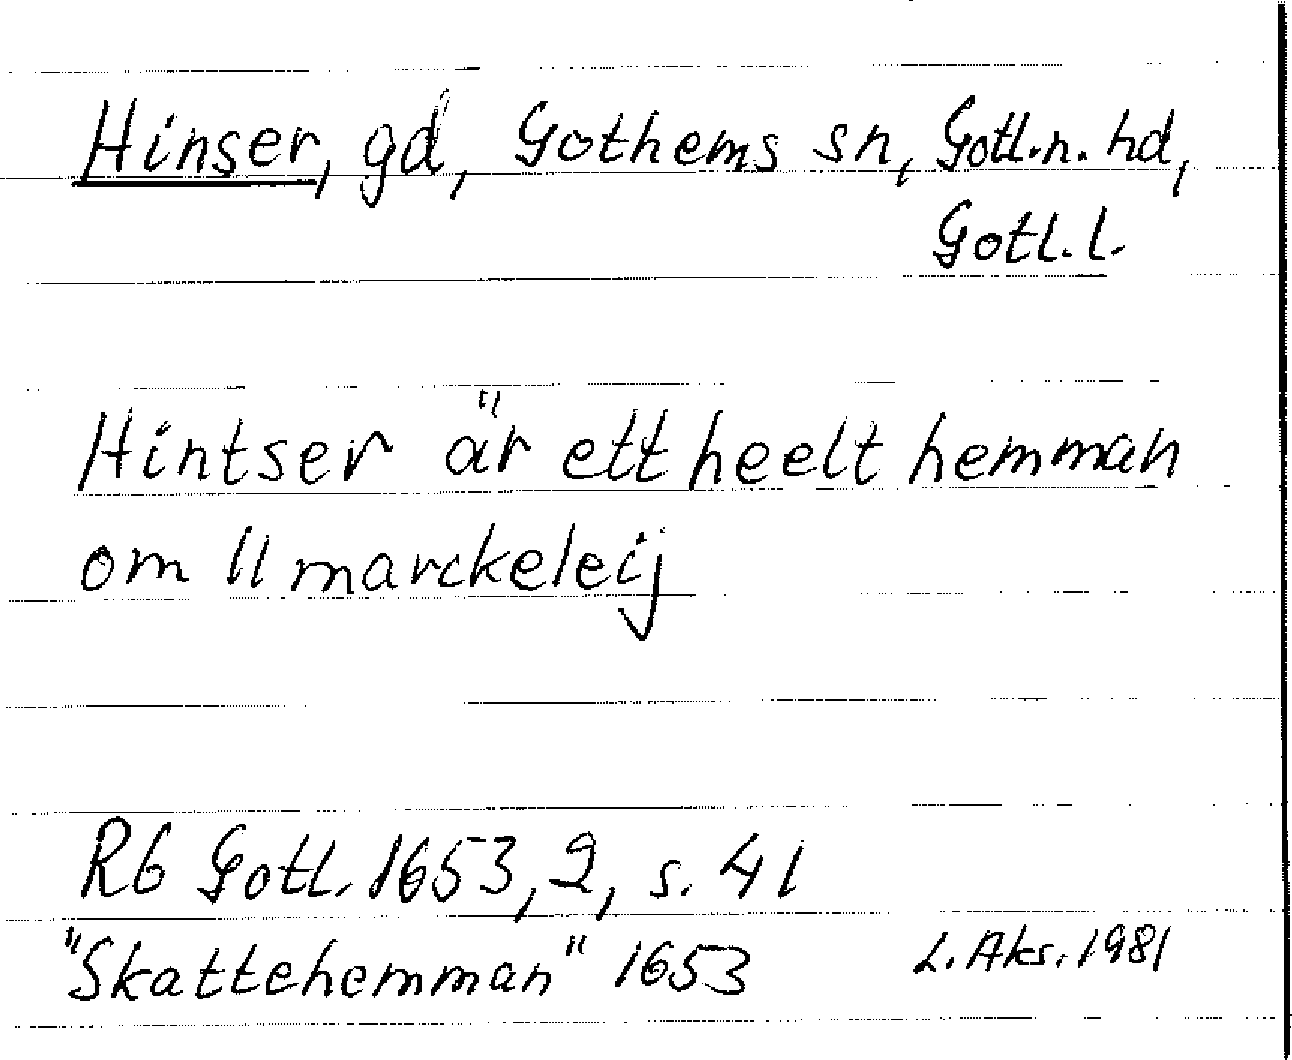 Hinser, gd, Gothems sn, Gotl.n. hd,
Gotl. l.
Hintser är ett heelt hemman
om 11 marckeleij
Rb Gotl. 1653, 2, s. 41
"Skattehemman" 1653 L. Aks. 1981